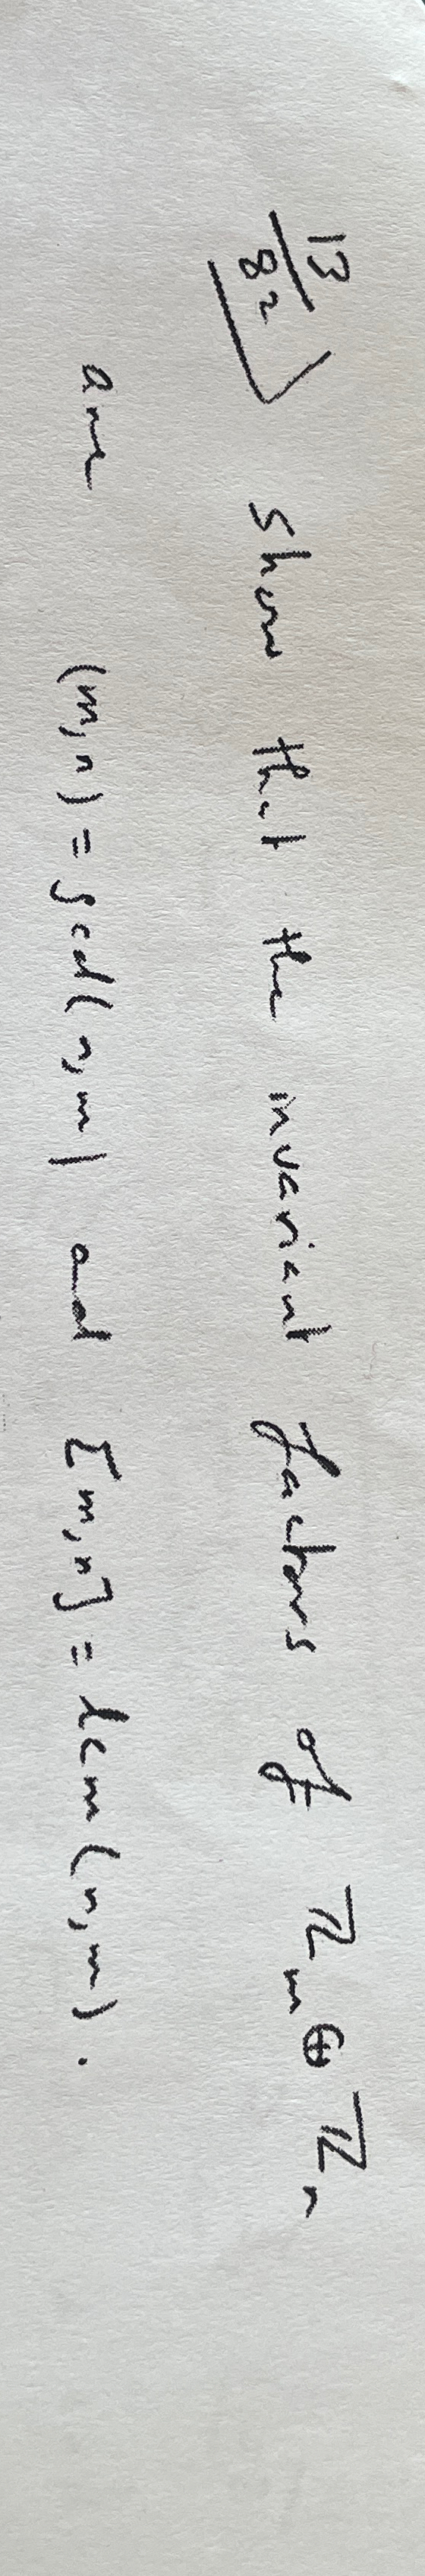 13/82 show that the invariant factors of ℤm ⊕ ℤn
are (m,n) = gcd(n,m) and [m,n] = lcm(n,m).